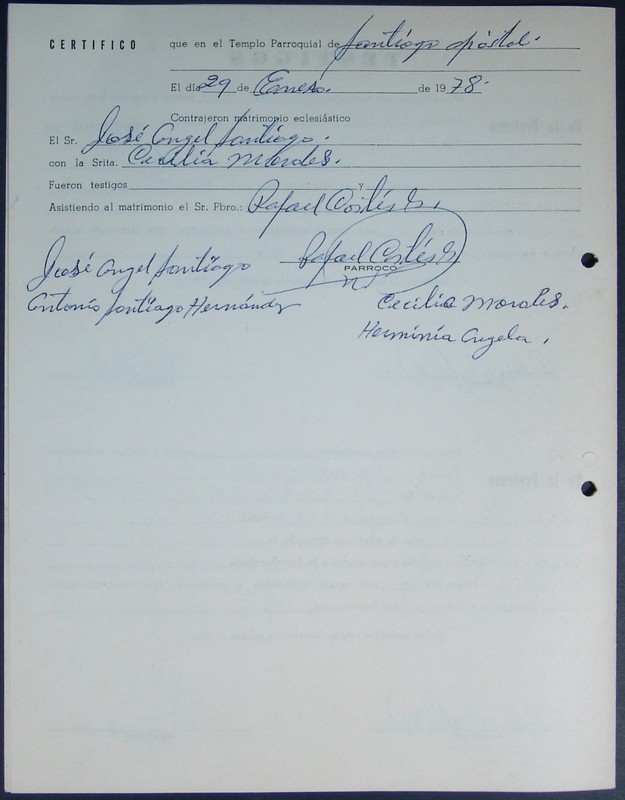 CERTIFICO que en el Templo Parroquial de Santiago Apóstol.
El día 29 de Enero. de 1978.
Contrajeron matrimonio eclesiástico
El Sr. José Angel Santiago.
con la Srita. Cecilia Morales.
Fueron testigos y
Asistiendo al matrimonio el Sr. Pbro.: Rafael Cortés
Rafael Cortés
PARROCO
José Angel Santiago
Antonio Santiago Hernández
Cecilia Morales.
Herminia Angela.